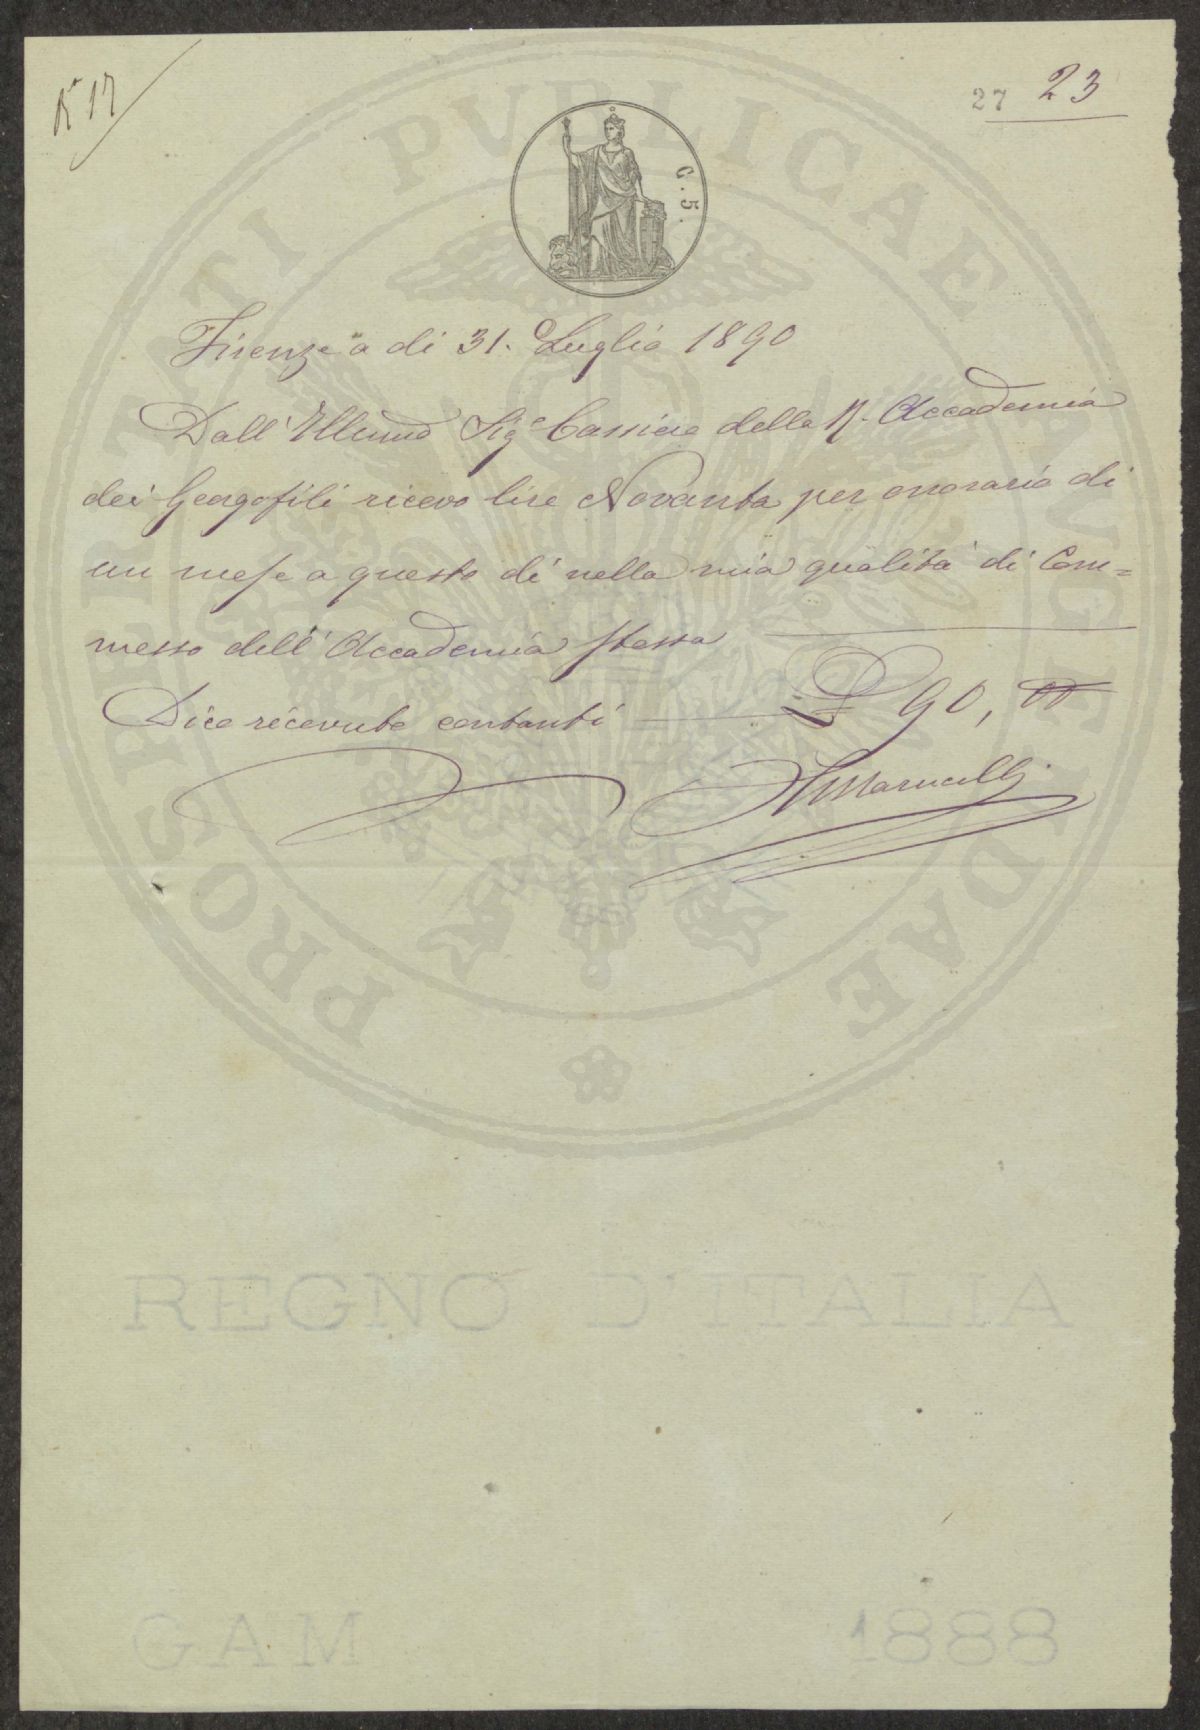 N° 17
27 23
C. 5.
Firenze a di 31. Luglio 1890
Dall' Illumo Sige Cassiere della R. Accademia
dei Georgofili ricevo lire Novanta per onorario di
un mese a questo dì nella mia qualità di Com=
messo dell' Accademia stessa
Dico ricevute contanti £ 90, 00
Marucelli
PROSPERITATI PVBLICAE AVGENDAE
REGNO D'ITALIA
GAM 1888